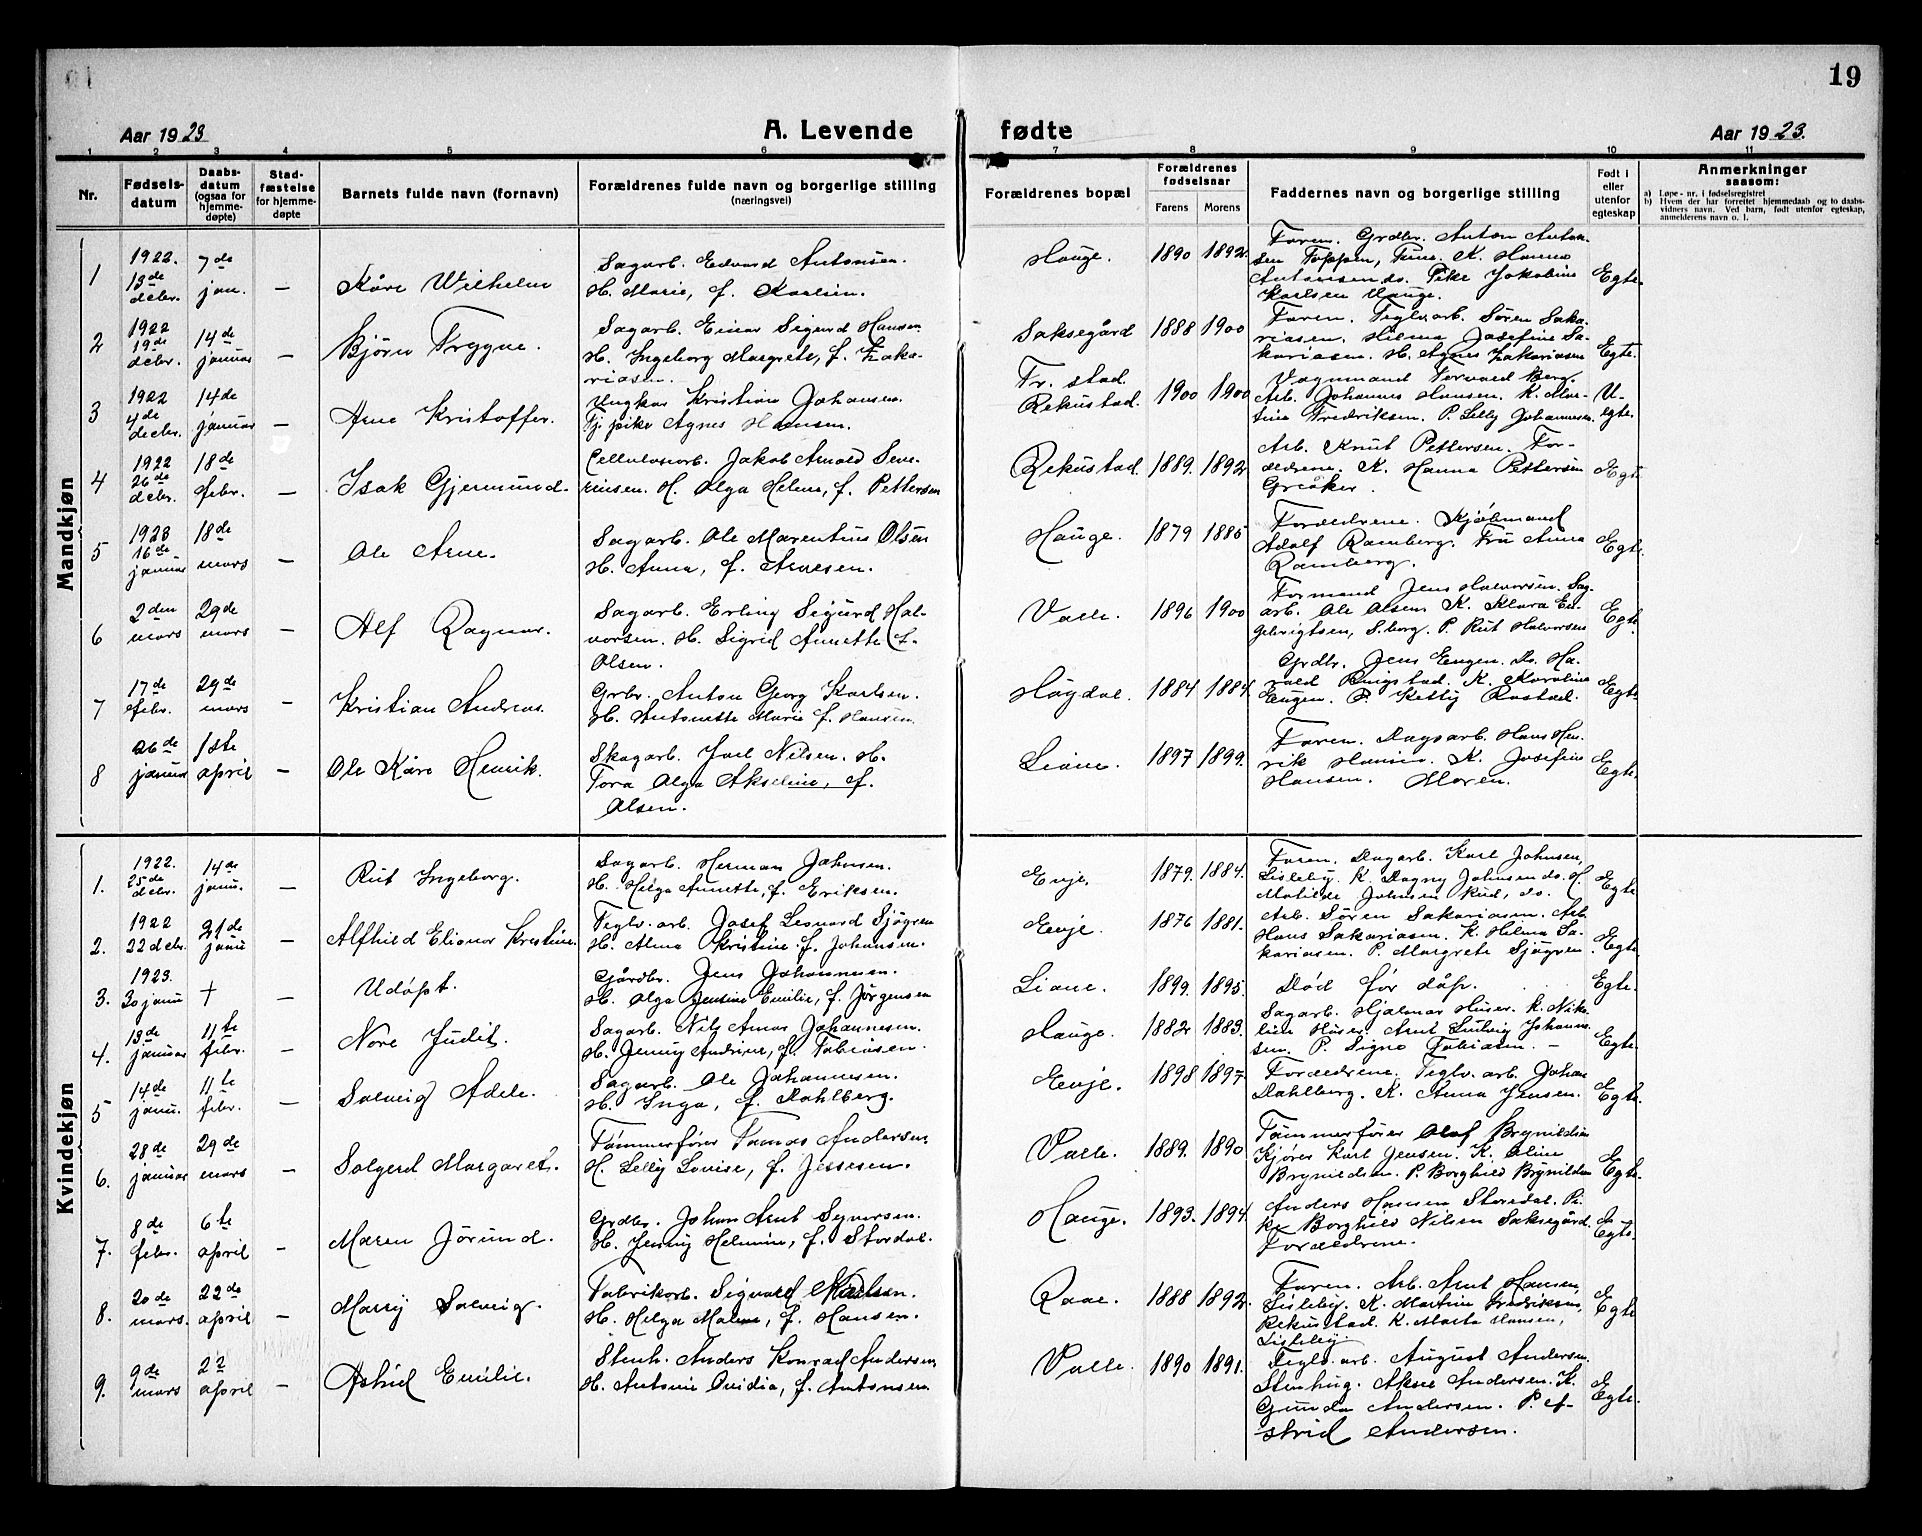 19
Aar 1923
A. Levende
fødte
Aar 1923.
1 2 3 4 5 6 7 8 9 10 11
Nr.
Fødsels-
datum
Daabs-
datum
(ogsaa for
hjemme-
døpte)
Stad-
fæstelse
for hjemme-
døpte
Barnets fulde navn (fornavn)
Forældrenes fulde navn og borgerlige stilling
(næringsvei)
Forældrenes bopæl
Forældrenes
fødselsaar
Farens
Morens
Faddernes navn og borgerlige stilling
Født i
eller
utenfor
egteskap
Anmerkninger
saasom:
a) Løpe-nr. i fødselsregistret
b) Hvem der har forrettet hjemmedaab og to daabs-
vidners navn. Ved barn, født utenfor egteskap,
anmelderens navn o. l.
Mandkjøn
1
1922.
13de
decbr.
7de
jan.
—
Kåre Wilhelm
Sagarb. Edvard Antonsen.
H. Marie, f. Karlsen.
Hauge.
1890
1892
Faren. Grdbr. Anton Anton-
sen Toppen, Tune. K. Hanna
Antonsen ds. Pike Jakobine
Karlsen Hauge.
Egte.
2
1922
19de
decbr.
14de
januar
—
Bjørn Trygve.
Sagarb. Einar Sigurd Hansen
H. Ingeborg Margrete, f. Zaka-
riasen.
Saksegård
1888
1900
Faren. Teglv.arb. Søren Saka-
riasen. Helma Josefine Sa-
kariasen. H. Agnes Zakariasen
Egte.
3
1922
4de
decbr.
14de
januar
—
Arne Kristoffer.
Ungkar Kristian Johansen.
Tj. pike Agnes Hansen.
Fr. stad.
Rekustad.
1900
1900
Vognmand Torvald Berg.
Arb. Johannes Hansen. K. Mar-
tine Fredriksen. P. Lelly Johannessen.
U-
egte.
4
1922
26de
decbr.
18de
febr.
—
Isak Gjermund.
Cellulosearb. Jakob Arnold Seve-
rinsen. H. Olga Helene, f. Pettersen
Rekustad.
1889.
1892
Arb. Knut Pettersen. For-
ældrene. K. Hanna Pettersen
Greåker.
Egte
5
1923
16de
januar
18de
mars
—
Ole Arne.
Sagarb. Ole Marentius Olsen
H. Anna, f. Arnesen.
Hauge.
1879
1885
Forældrene. Kjøbmand
Adolf Ramberg. Fru Anna
Ramberg.
Egte.
6
2den
mars
29de
mars
—
Alf Ragnar.
Sagarb. Erling Sigurd Hal-
vorsen. H. Sigrid Annette f.
Olsen.
Valle.
1896
1900
Formand Jens Halvorsen. Sag-
arb. Ole Olsen. K. Klara En-
gelvigtsen, S.borg. P. Rut Halvorsen
Egte.
7
17de
febr.
29de
mars
—
Kristian Andreas.
Grbr. Anton Georg Karlsen.
H. Antonette Marie f. Hansen.
Høgdal.
1884
1884.
Grdbr. Jens Engen. Ds. Ha-
rald Ringstad. K. Karoline
Engen. P. Ketty Rostad.
Egte.
8
26de
januar
1ste
april
—
Ole Kåre Henrik.
Skogarb. Joel Nilsen. H.
Tora Olga Akseline, f.
Olsen.
Liane.
1897
1899.
Faren. Dagsarb. Hans Hen-
rik Hansen. K. Josefine
Hansen. Moren.
Egte.
Kvindekjøn
1.
1922.
25de
decbr.
14de
janu.
—
Rut Ingeborg.
Sagarb. Herman Johnsen.
H. Helga Annette, f. Eriksen.
Evje.
1879.
1884.
Faren. Dagarb. Karl Johnsen,
Lisleby. K. Dagny Johnsen ds. H.
Matilde Johnsen Rud, ds.
Egte
2.
1922
22 decbr.
21de
janu
—
Alfhild Elionor Kristine.
Teglv. arb. Josef Leonard Sjøgren
H. Alma Kristine f. Johansen.
Evje.
1876
1881.
Arb. Søren Sakariasen. Arb.
Hans Sakariasen. K. Hilma Sa-
kariasen. P. Margrete Sjøgren.
Egte.
3.
1923.
30 janu
†
—
Udøpt.
Gårdbr. Jens Johannesen.
H. Olga Jensine Emilie, f. Jørgensen
Liane.
1899.
1895.
Død før dåp.
Egte.
4.
13de
januar
11te
febr.
—
Nore Judit.
Sagarb. Nils Arnas Johannesen.
H. Jenny Andrine, f. Tobiasen.
Hauge.
1882
1883.
Sagarb. Hjalmar Huser. K. Niko-
line Huser. Arnt Ludvig Johanne-
sen. P. Signe Tobiasen. —
Egte.
5
14de
janu.
11te
febr.
—
Solveig Adele.
Sagarb. Ole Johannesen.
H. Inga, f. Dahlberg.
Evje.
1898
1897
Forældrene. Teglv. arb. Johan
Dahlberg. K. Anna Jensen.
Egte.
6.
28de
januar
29de
mars
—
Solgerd Margaret.
Tømmerfører Tomas Andersen,
H. Lelly Lovise, f. Jessesen.
Valle.
1889.
1890
Tømmerfører Olaf Brynildsen
Kjører Karl Jensen. K. Eline
Brynildsen. P. Borghild Brynildsen
Egte.
7.
8de
febr.
6te
april
—
Maren Jørund.
Grdbr. Johan Arnt Syversen.
H. Jenny Helmine, f. Stordal.
Hauge.
1893.
1894.
Anders Hansen Stordal. Pi-
ke Borghild Nilsen Saksegård.
Forældrene.
Egte.
8.
20de
mars.
22de
april
—
Marry Solveig.
Fabrikarb. Sigvald Karlsen.
H. Helga Malene, f. Hansen.
Raae.
1888
1892.
Faren. Arb. Arnt Hansen,
Lisleby. K. Martine Fredriksen,
Rekustad. K. Marta Hansen,
Lisleby.
Egte
9.
9de
mars
22
april
—
Astrid Emilie.
Stenh. Anders Konrad Andersen,
H. Antonie Ovidia, f. Antonsen.
Valle.
1890
1891.
Teglv. arb. August Andersen.
Stenhug. Aksel Andersen. K.
Gunda Andersen. P. A-
strid Andersen.
Egte.